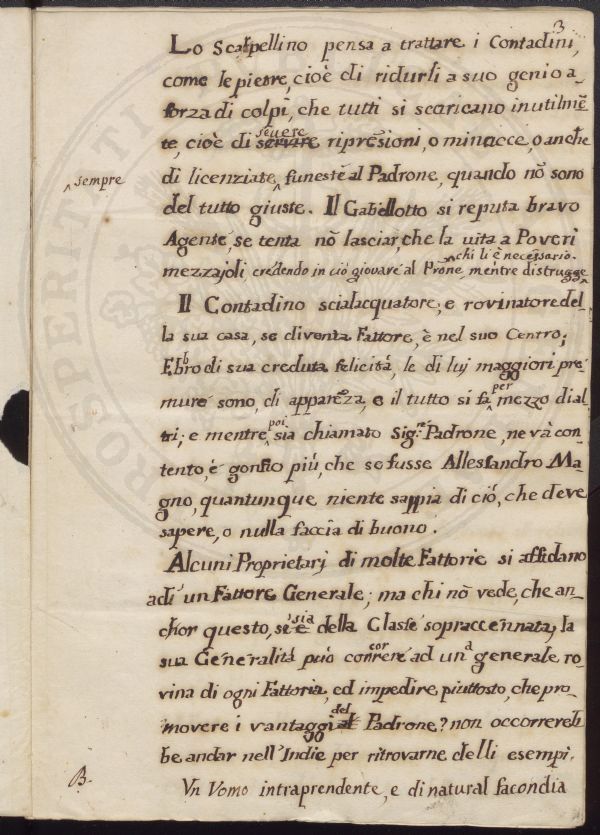 3
Lo Scalpellino pensa a trattare i Contadini,
come le pietre, cioè di ridurli a suo genio a
forza di colpi, che tutti si scaricano inutilmẽ
te, cioè di severe ripressioni, o minacce, o anche
sempre
di licenziate, funeste al Padrone, quando nõ sono
del tutto giuste. Il Gabellotto si reputa bravo
Agente, se tenta nõ lasciar, che la vita a Poveri
chi li è necessario.
mezzajoli, credendo in ciò giovare al Prõne, mentre distrugge
Il Contadino scialacquatore, e rovinatore del-
la sua casa, se diventa Fattore, è nel suo Centro;
Ebbro di sua creduta felicità, le di luj maggiori pre-
mure sono, di appareza, e il tutto si fa per mezzo d'al
tri; e mentre poi sia chiamato Sigr. Padrone, ne và con-
tento, è gonfio più, che se fusse Allessandro Ma
gno, quantunque niente sappia di ciò, che deve
sapere, o nulla faccia di buono.
Alcuni Proprietarj di molte Fattorie si affidano
ad un Fattore Generale; ma chi nõ vede, che an-
chor questo, se sia della Classe sopraccennata, la
sua Generalità può correre ad una generale ro-
vina di ogni Fattoria, ed impedire piuttosto, che pro-
movere i vantaggi del Padrone? non occorrereb
be andar nell'Indie per ritrovarne delli esempi.
B.
Un Uomo intraprendente, e di natural facondia